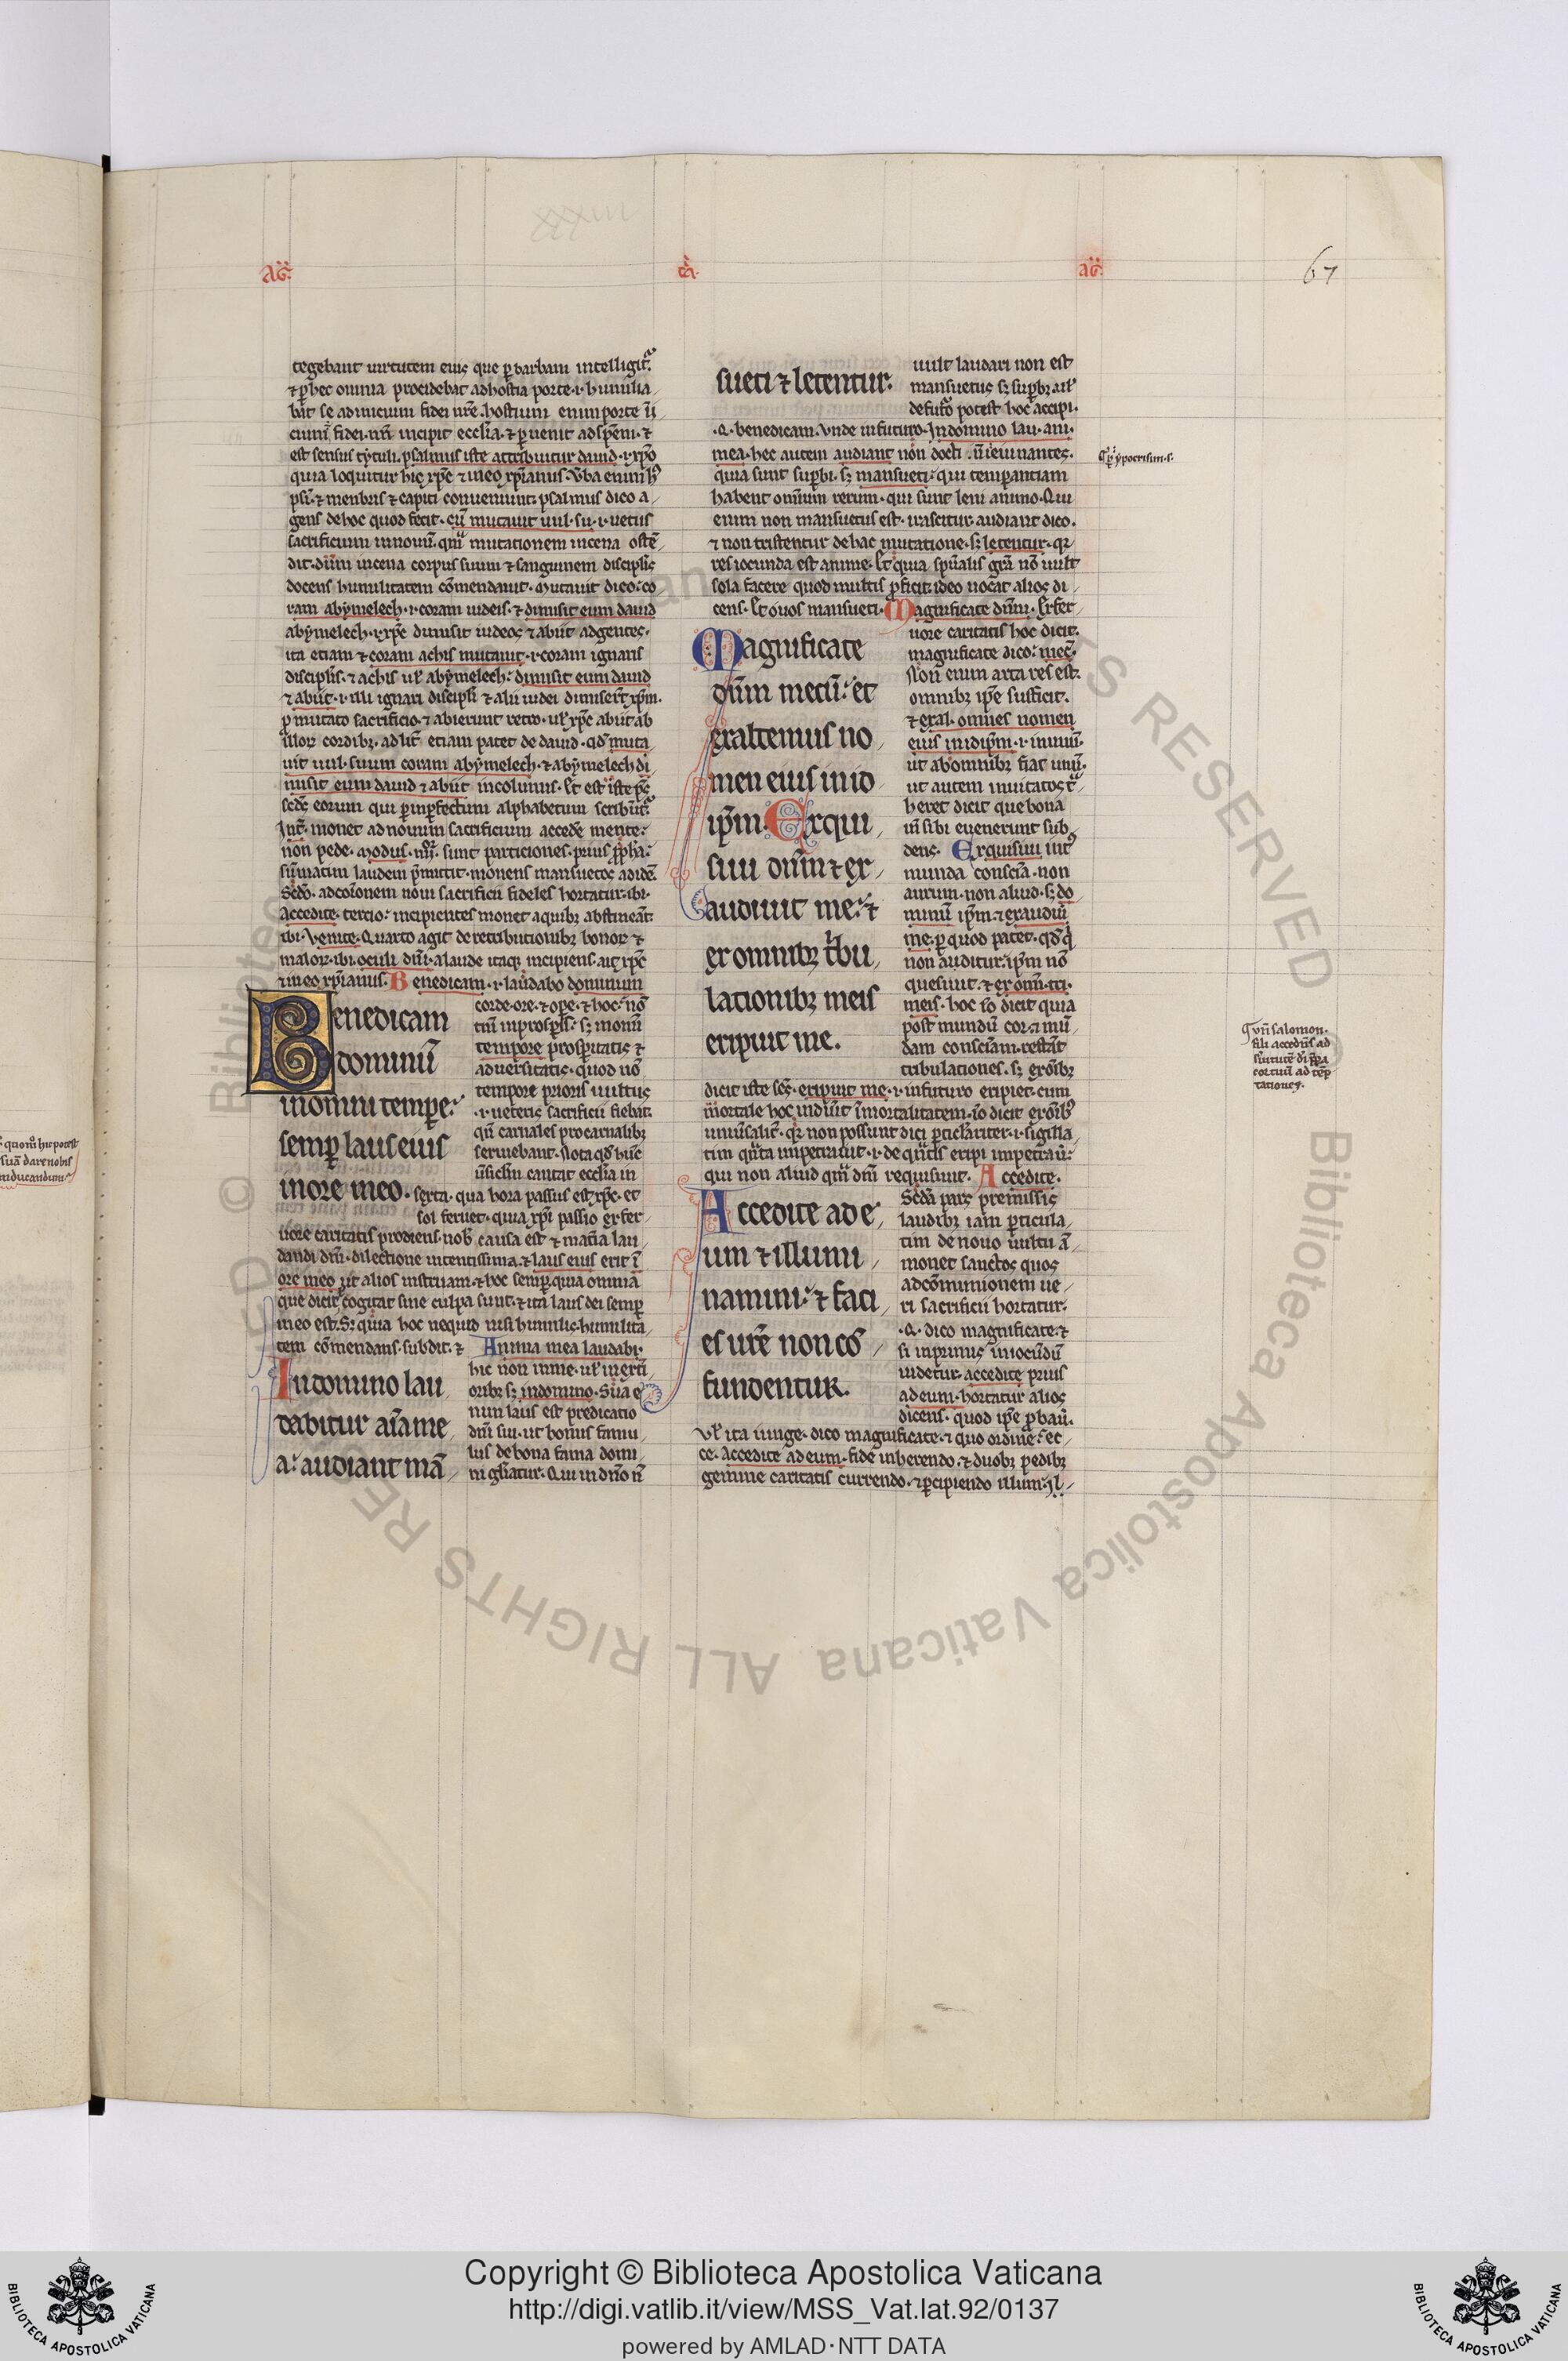 xxxiii
AG̃.
cã.
aG̃.
67
tegebant uirtutem eius que ꝑ barbam intelligit᷑.
⁊ ꝑ hec omnia procidebat ad hostia porte .i. humilia
bat se ad inicium fidei nr̄e. hostium enim porte ĩi
cium̃ fidei. nr̃i incipit eccl̃ia. ⁊ ꝑuenit ad spẽm. ⁊
est sensus tytuli. psalmus iste attribuitur dauid .i. xp̃o
quia loquitur hic xp̃c ⁊ in eo xp̃ianus. Vba enim h̾
psĩ. ⁊ menbris ⁊ capiti conueniunt. psalmus dico a
gens de hoc quod fecit. cũ mutauit uul. su. i. uetus
sacrificium in nouũ. qm̃ mutationem in cena ostẽ
dit. dum in cena corpus suum ⁊ sanguinem discipl̃is
docens humilitatem cõmendauit. Mutauit dico. co
ram abymelech. i. coram iudeis. ⁊ dimisit eum dauid
abymelech. i. xp̃c dimisit iudeos ⁊ abiit ad gentes.
ita etiam ⁊ coram achis mutauit. i. coram ignaris
discipl̃is. ⁊ achis ul̃ abymelech. dimisit eum dauid
⁊ abiit. i. illi ignari discipl̃i ⁊ alii iudei dimiser̃t xp̃m.
ꝓ mutato sacrificio. ⁊ abierunt retro. ul̃ xp̃c abiit ab
illoꝝ cordibꝫ. ad lit̃ etiam patet de dauid. qd̃ muta
uit uul. suum coram abymelech. ⁊ abymelech di
misit eum dauid ⁊ abiit incolumis. Et est iste pc̃
sedc̃ eorum qui ꝑ inperfectum alphabetum scribũt᷑.
Int̃. monet ad nouum sacrificium accedẽ mente.
non pede. Modus. iiii. sunt particiones. prius ꝓph̃a.
sũmatim laudem p̃mittit. monens mansuetos ad idẽ.
Scd̃o. ad com̃onem noui sacrificii fideles hortatur. ibi.
accedite. tercio. incipientes monet a quibꝫ abstineãt.
ibi. Venite. Quarto agit de retributionibꝫ bonoꝝ ⁊
maloꝝ. ibi. oculi dñi. a laude itaqꝫ incipiens. ait xp̃c
⁊ in eo xp̃ianus. Benedicam. i. laudabo dominum
Benedicam
dominũ
in omni tempe.
semꝑ laus eius
in ore meo.
corde. ore. ⁊ oꝑe. ⁊ hoc. nõ
tm̃ in prospis. sꝫ in omi
tempore prosperitatis ⁊
aduersitatis. quod nõ
tempore prioris uultus
.i. ueteris sacrificii fiebat.
qm̃ carnales pro carnalibꝫ
seruiebant. Nota qd̃ hũc
ũsiclm̃ cantat eccl̃ia in
sexta. qua hora passus est xp̃c. et
sol feruet. quia xp̃i passio ex fer
uore caritatis prodiens. nob̃ causa est ⁊ mat̃ia lau
dandi dñi. dilectione intentissima. ⁊ laus eius erit ĩ
ore meo. ut alios instruam. ⁊ hoc semꝑ. quia omnia
que dicit. cogitat sine culpa sunt. ⁊ ita laus dei semꝑ
in eo est. Sꝫ quia hoc nequid nisi humilis. humilita
tem cõmendans. subdit. ⁊ Anima mea laudabi.
In domino lau
dabitur aĩa me
a. audiant mã
hic non in me. ul̃ in ert̃i
oribꝫ sꝫ in domino. Sua e
nim laus est predicatio
dñi sui. ut bonus famu
lus de bona fama domi
ni gl̃iatur. Qui in dño ñ
sueti ⁊ letentur.
uult laudari non est
mansuetus sꝫ suꝑbꝫ. ul̃
de futo potest hoc accipi.
.Q. benedicam. Vnde in futuro. In domino lau. ani.
mea. hec autem audiant non docti.
quia sunt suꝑbi. sꝫ mansueti. qui temperantiam
habent omnium rerum. qui sunt leni animo. Qui
enim non mansuetus est. irascitur. audiant dico.
⁊ non tristentur de hac mutatione. sꝫ letentur. qꝛ
res iocunda est anime. Et quia spũalis gr̃a nõ uult
sola facere quod multis ꝓficit. ideo uocat alios di
cens. Et o uos mansueti. Magnificate dñm. Ex fer
Magnificate
dñm mecũ. et
exaltemus no
men eius in id
ip̃m. Exqui
siui dñm ⁊ ex
audiuit me. ⁊
ex omnibꝫ tribu
lationibꝫ meis
eripuit me.
uore caritatis hoc dicit.
magnificate dico. mec̃.
Non enim arta res est.
omnibꝫ ip̃e sufficit.
⁊ exal. omnes nomen
eius in idip̃m. i. in unũ.
ut ab omnibꝫ fiat unũ.
ut autem inuitatos t᷑
heret dicit que bona
iñ sibi euenerunt sub
dens. Exquisiui int̾
munda consciã. non
aurum. non aliud. sꝫ do
minũ ip̃m. ⁊ exaudiũ
me. ꝑ quod patet. qd̃ q̃
non auditur. ip̃m nõ
quesiuit. ⁊ ex omñ. tri.
meis. hoc ĩo dicit quia
post mundũ cor. ⁊ mũ
dam consciãm. restãt
tribulationes. sꝫ ex oĩbꝫ
dicit iste ses̃. eripuit me. i. in futuro eripiet. cum
mortale hoc induit ĩmortalitatem. ĩo dicit ex oĩbꝫ
uniũsalit̃. qꝛ non possunt dici ꝑticl̃ariter. i. sigilla
tim quãta impetrauit. i. de quãtis eripi impetrãũ.
qui non aliud qm̃ dñi requisiuit. Accedite.
Accedite ad e
um ⁊ illumi
namini. ⁊ faci
es ur̃e non cõ
fundentur.
Scd̃a pars premissis
laudibꝫ iam ꝑticula
tim de nouo uultu ã
monet sanctos quos
ad cõmunionem ue
ri sacrificii hortatur.
.Q. dico magnificate. ⁊
si inprimis iniocũdũ
uidetur. accedite prius
ad eum. hortatur alios
dicens. quod ip̃e ꝓbaũ.
Vl̃ ita iunge. dico magnificate. ⁊ quo ordine. ec
ce. Accedite ad eum. fide inherendo. ⁊ duobꝫ pedibꝫ
gemine caritatis currendo. ⁊ ꝑcipiendo illum.
ypocrisim. s.
vñ salomon.
fili accedñs ad
s̃uitutẽ dĩ p̃pa
cor tuũ ad tẽp
tationes.
suã dare nobis
manducandum.
Copyright © Biblioteca Apostolica Vaticana
http://digi.vatlib.it/view/MSS_Vat.lat.92/0137
powered by AMLAD·NTT DATA
BIBLIOTECA APOSTOLICA VATICANA
BIBLIOTECA APOSTOLICA VATICANA
© Biblioteca Apostolica Vaticana ALL RIGHTS RESERVED